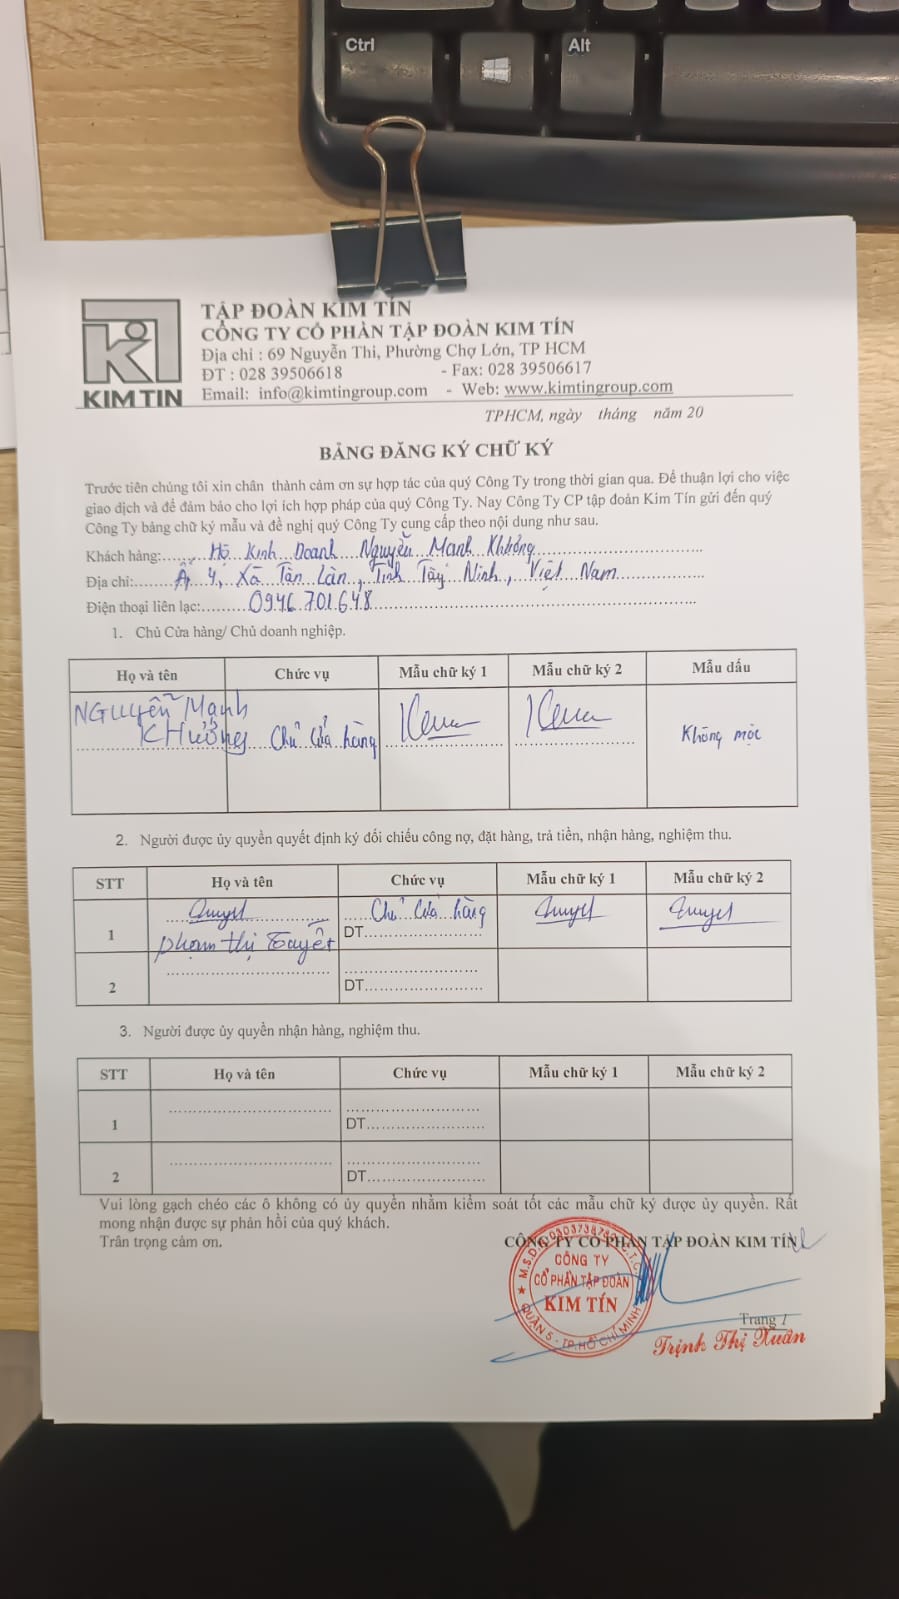 Ctrl
Alt
TẬP ĐOÀN KIM TÍN
CÔNG TY CỔ PHẦN TẬP ĐOÀN KIM TÍN
Địa chỉ : 69 Nguyễn Thi, Phường Chợ Lớn, TP HCM
ĐT : 028 39506618 - Fax: 028 39506617
KIM TIN Email: info@kimtingroup.com - Web: www.kimtingroup.com
TPHCM, ngày tháng năm 20
BẢNG ĐĂNG KÝ CHỮ KÝ
Trước tiên chúng tôi xin chân thành cảm ơn sự hợp tác của quý Công Ty trong thời gian qua. Để thuận lợi cho việc
giao dịch và để đảm bảo cho lợi ích hợp pháp của quý Công Ty. Nay Công Ty CP tập đoàn Kim Tín gửi đến quý
Công Ty bảng chữ ký mẫu và đề nghị quý Công Ty cung cấp theo nội dung như sau.
Khách hàng:..... Hộ Kinh Doanh Nguyễn Mạnh Khưởng
Địa chỉ:..... Ấp 4, Xã Tân Lân, Tỉnh Tây Ninh, Việt Nam
Điện thoại liên lạc:..... 0946.701.648
1. Chủ Cửa hàng/ Chủ doanh nghiệp.
Họ và tên Chức vụ Mẫu chữ ký 1 Mẫu chữ ký 2 Mẫu dấu
NGUYỄN MẠNH
KHƯỞNG Chủ Cửa hàng Không mộc
2. Người được ủy quyền quyết định ký đối chiếu công nợ, đặt hàng, trả tiền, nhận hàng, nghiệm thu.
STT Họ và tên Chức vụ Mẫu chữ ký 1 Mẫu chữ ký 2
Tuyết Chủ Cửa hàng Tuyết Tuyết
1 Phạm Thị Tuyết DT..........
2 DT..........
3. Người được ủy quyền nhận hàng, nghiệm thu.
STT Họ và tên Chức vụ Mẫu chữ ký 1 Mẫu chữ ký 2
1 DT..........
2 DT..........
Vui lòng gạch chéo các ô không có ủy quyền nhằm kiểm soát tốt các mẫu chữ ký được ủy quyền. Rất
mong nhận được sự phản hồi của quý khách.
Trân trọng cảm ơn.
CÔNG TY CỔ PHẦN TẬP ĐOÀN KIM TÍN
CÔNG TY
CỔ PHẦN TẬP ĐOÀN
KIM TÍN
QUẬN 5 - TP.HỒ CHÍ MINH
Trang 1
Trịnh Thị Xuân